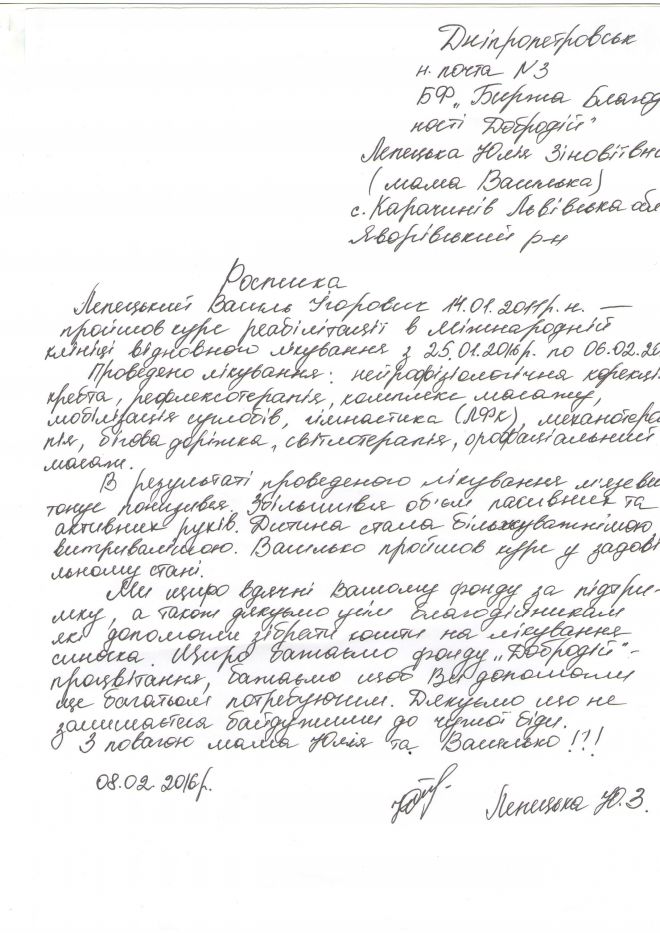 Дніпропетровськ
н. почта N3
БФ „Биржа Благод
ності Добродій"
Лепецька Юлія Зіновіївн
(мама Василька)
с. Карачинів Львівська обл
Яворівський р-н
Росписка
Лепецький Василь Ігорович 14.01.2011р.н. —
пройшов курс реабілітації в Міжнародній
клініці відновного лікування з 25.01.2016р. по 06.02.20
Проведено лікування: нейрофізіологічна корекція
хребта, рефлексотерапія, комплекс масажу,
мобілізація суглобів, гімнастика (ЛФК), механотера
пія, бігова доріжка, світлотерапія, орофаціальний
масаж.
В результаті проведеного лікування м'язеви
тонус понизився. Збільшився об'єм пасивних та
активних рухів. Дитина стала більш уважнішою
витривалішою. Василько пройшов курс у задові
льному стані.
Ми щиро вдячні Вашому фонду за підтри-
мку, а також дякуємо усім благодійникам
які допомогли зібрати кошти на лікування
синочка. Щиро бажаємо фонду „Добродій"-
процвітання, бажаємо щоб Ви допомогли
ще багатьом потребуючим. Дякуємо що не
залишаєтеся байдужими до чужої біди.
З повагою мама Юлія та Василько!!!
08.02.2016р.
Лепецька Ю.З.